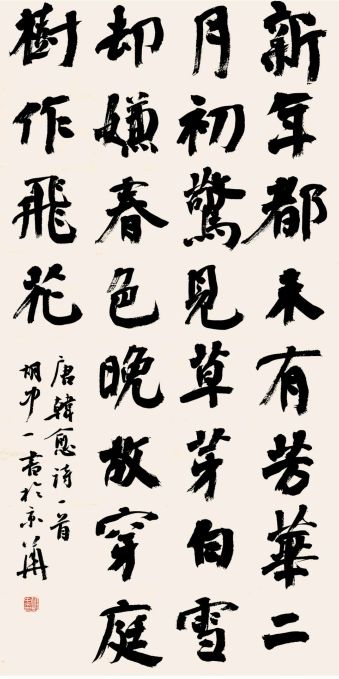 新年都未有芳華二
月初驚見草芽白雪
却嫌春色晚故穿庭
樹作飛花
唐韓愈诗一首
胡中一書於京華